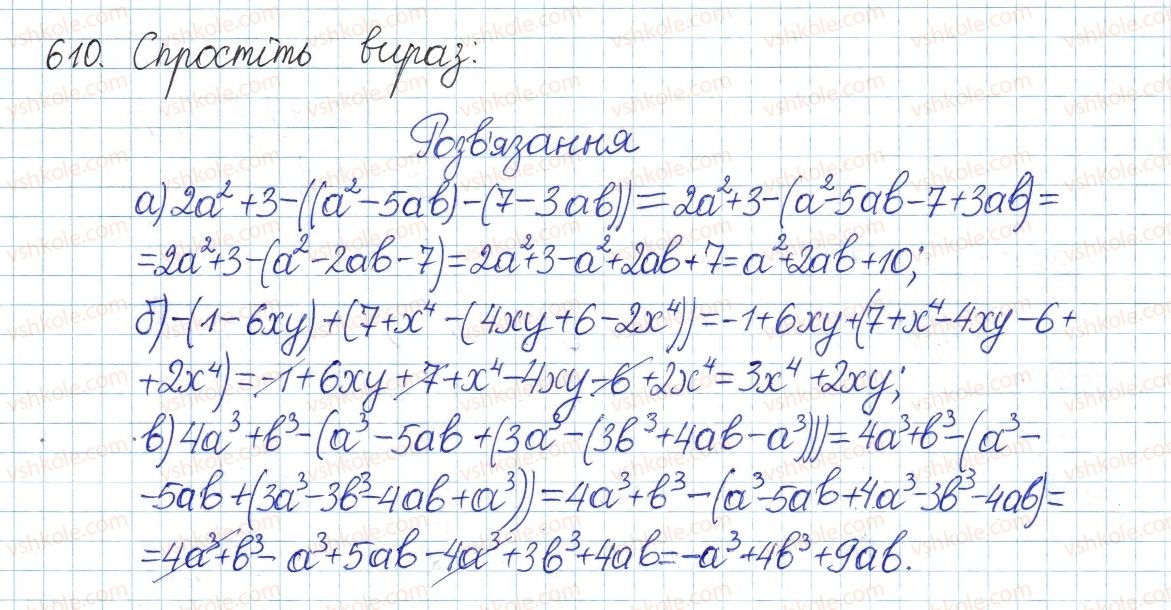 610. Спростіть вираз:
Розв'язання
а) 2a² + 3 - ((a² - 5ab) - (7 - 3ab)) = 2a² + 3 - (a² - 5ab - 7 + 3ab) =
= 2a² + 3 - (a² - 2ab - 7) = 2a² + 3 - a² + 2ab + 7 = a² + 2ab + 10;
б) -(1 - 6xy) + (7 + x⁴ - (4xy + 6 - 2x⁴)) = -1 + 6xy + (7 + x⁴ - 4xy - 6 +
+ 2x⁴) = -1 + 6xy + 7 + x⁴ - 4xy - 6 + 2x⁴ = 3x⁴ + 2xy;
в) 4a³ + b³ - (a³ - 5ab + (3a³ - (3b³ + 4ab - a³))) = 4a³ + b³ - (a³ -
- 5ab + (3a³ - 3b³ - 4ab + a³)) = 4a³ + b³ - (a³ - 5ab + 4a³ - 3b³ - 4ab) =
= 4a³ + b³ - a³ + 5ab - 4a³ + 3b³ + 4ab = -a³ + 4b³ + 9ab.